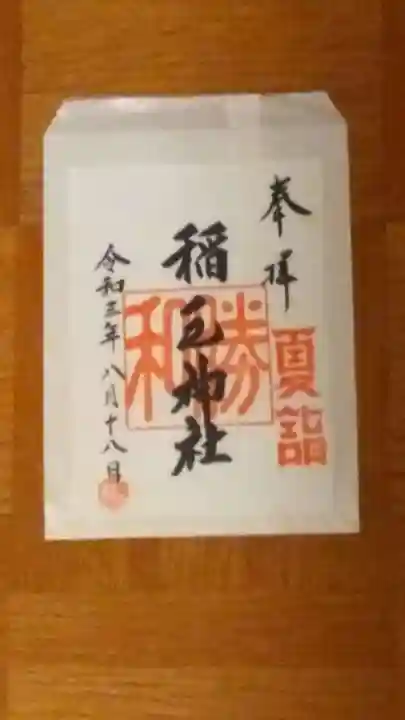 奉拝
夏詣
稲毛神社
勝
和
令和三年八月十八日